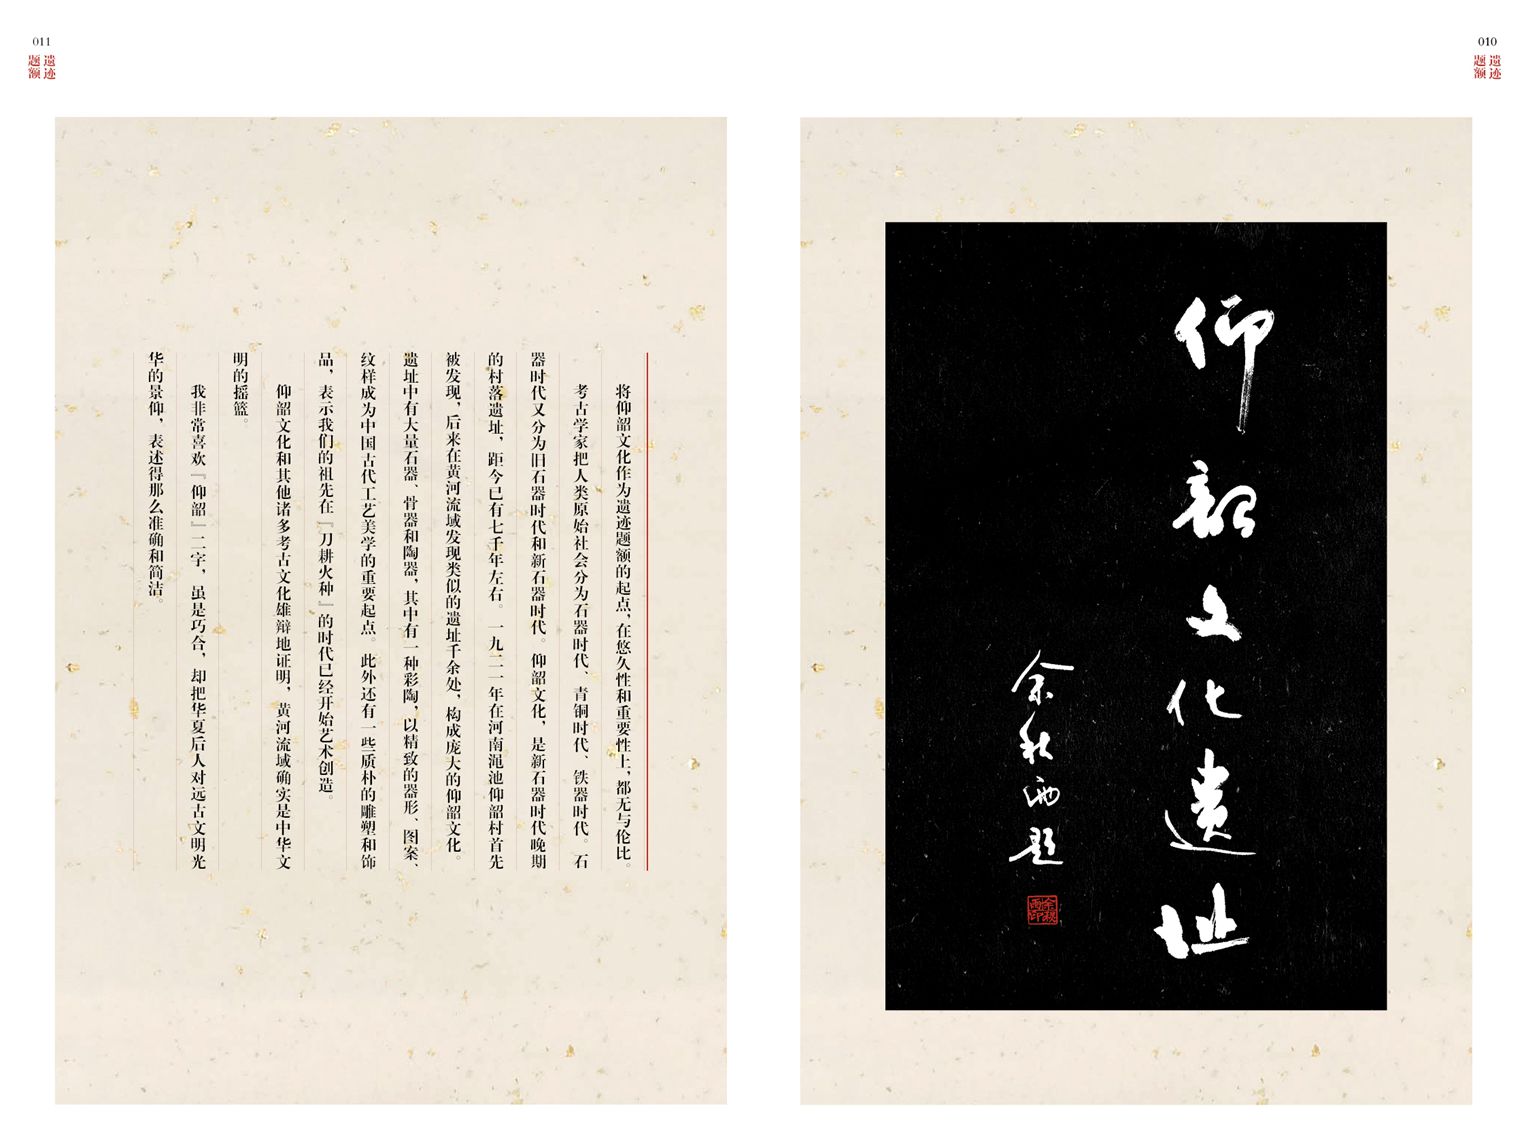 010
遗迹
题额
仰韶文化遗址
余秋雨题
余秋雨印
011
遗迹
题额
将仰韶文化作为遗迹题额的起点，在悠久性和重要性上，都无与伦比。
考古学家把人类原始社会分为石器时代、青铜时代、铁器时代。石
器时代又分为旧石器时代和新石器时代。仰韶文化，是新石器时代晚期
的村落遗址，距今已有七千年左右。一九二一年在河南渑池仰韶村首先
被发现，后来在黄河流域发现类似的遗址千余处，构成庞大的仰韶文化。
遗址中有大量石器、骨器和陶器，其中有一种彩陶，以精致的器形、图案、
纹样成为中国古代工艺美学的重要起点。此外还有一些质朴的雕塑和饰
品，表示我们的祖先在『刀耕火种』的时代已经开始艺术创造。
仰韶文化和其他诸多考古文化雄辩地证明，黄河流域确实是中华文
明的摇篮。
我非常喜欢『仰韶』二字，虽是巧合，却把华夏后人对远古文明光
华的景仰，表述得那么准确和简洁。